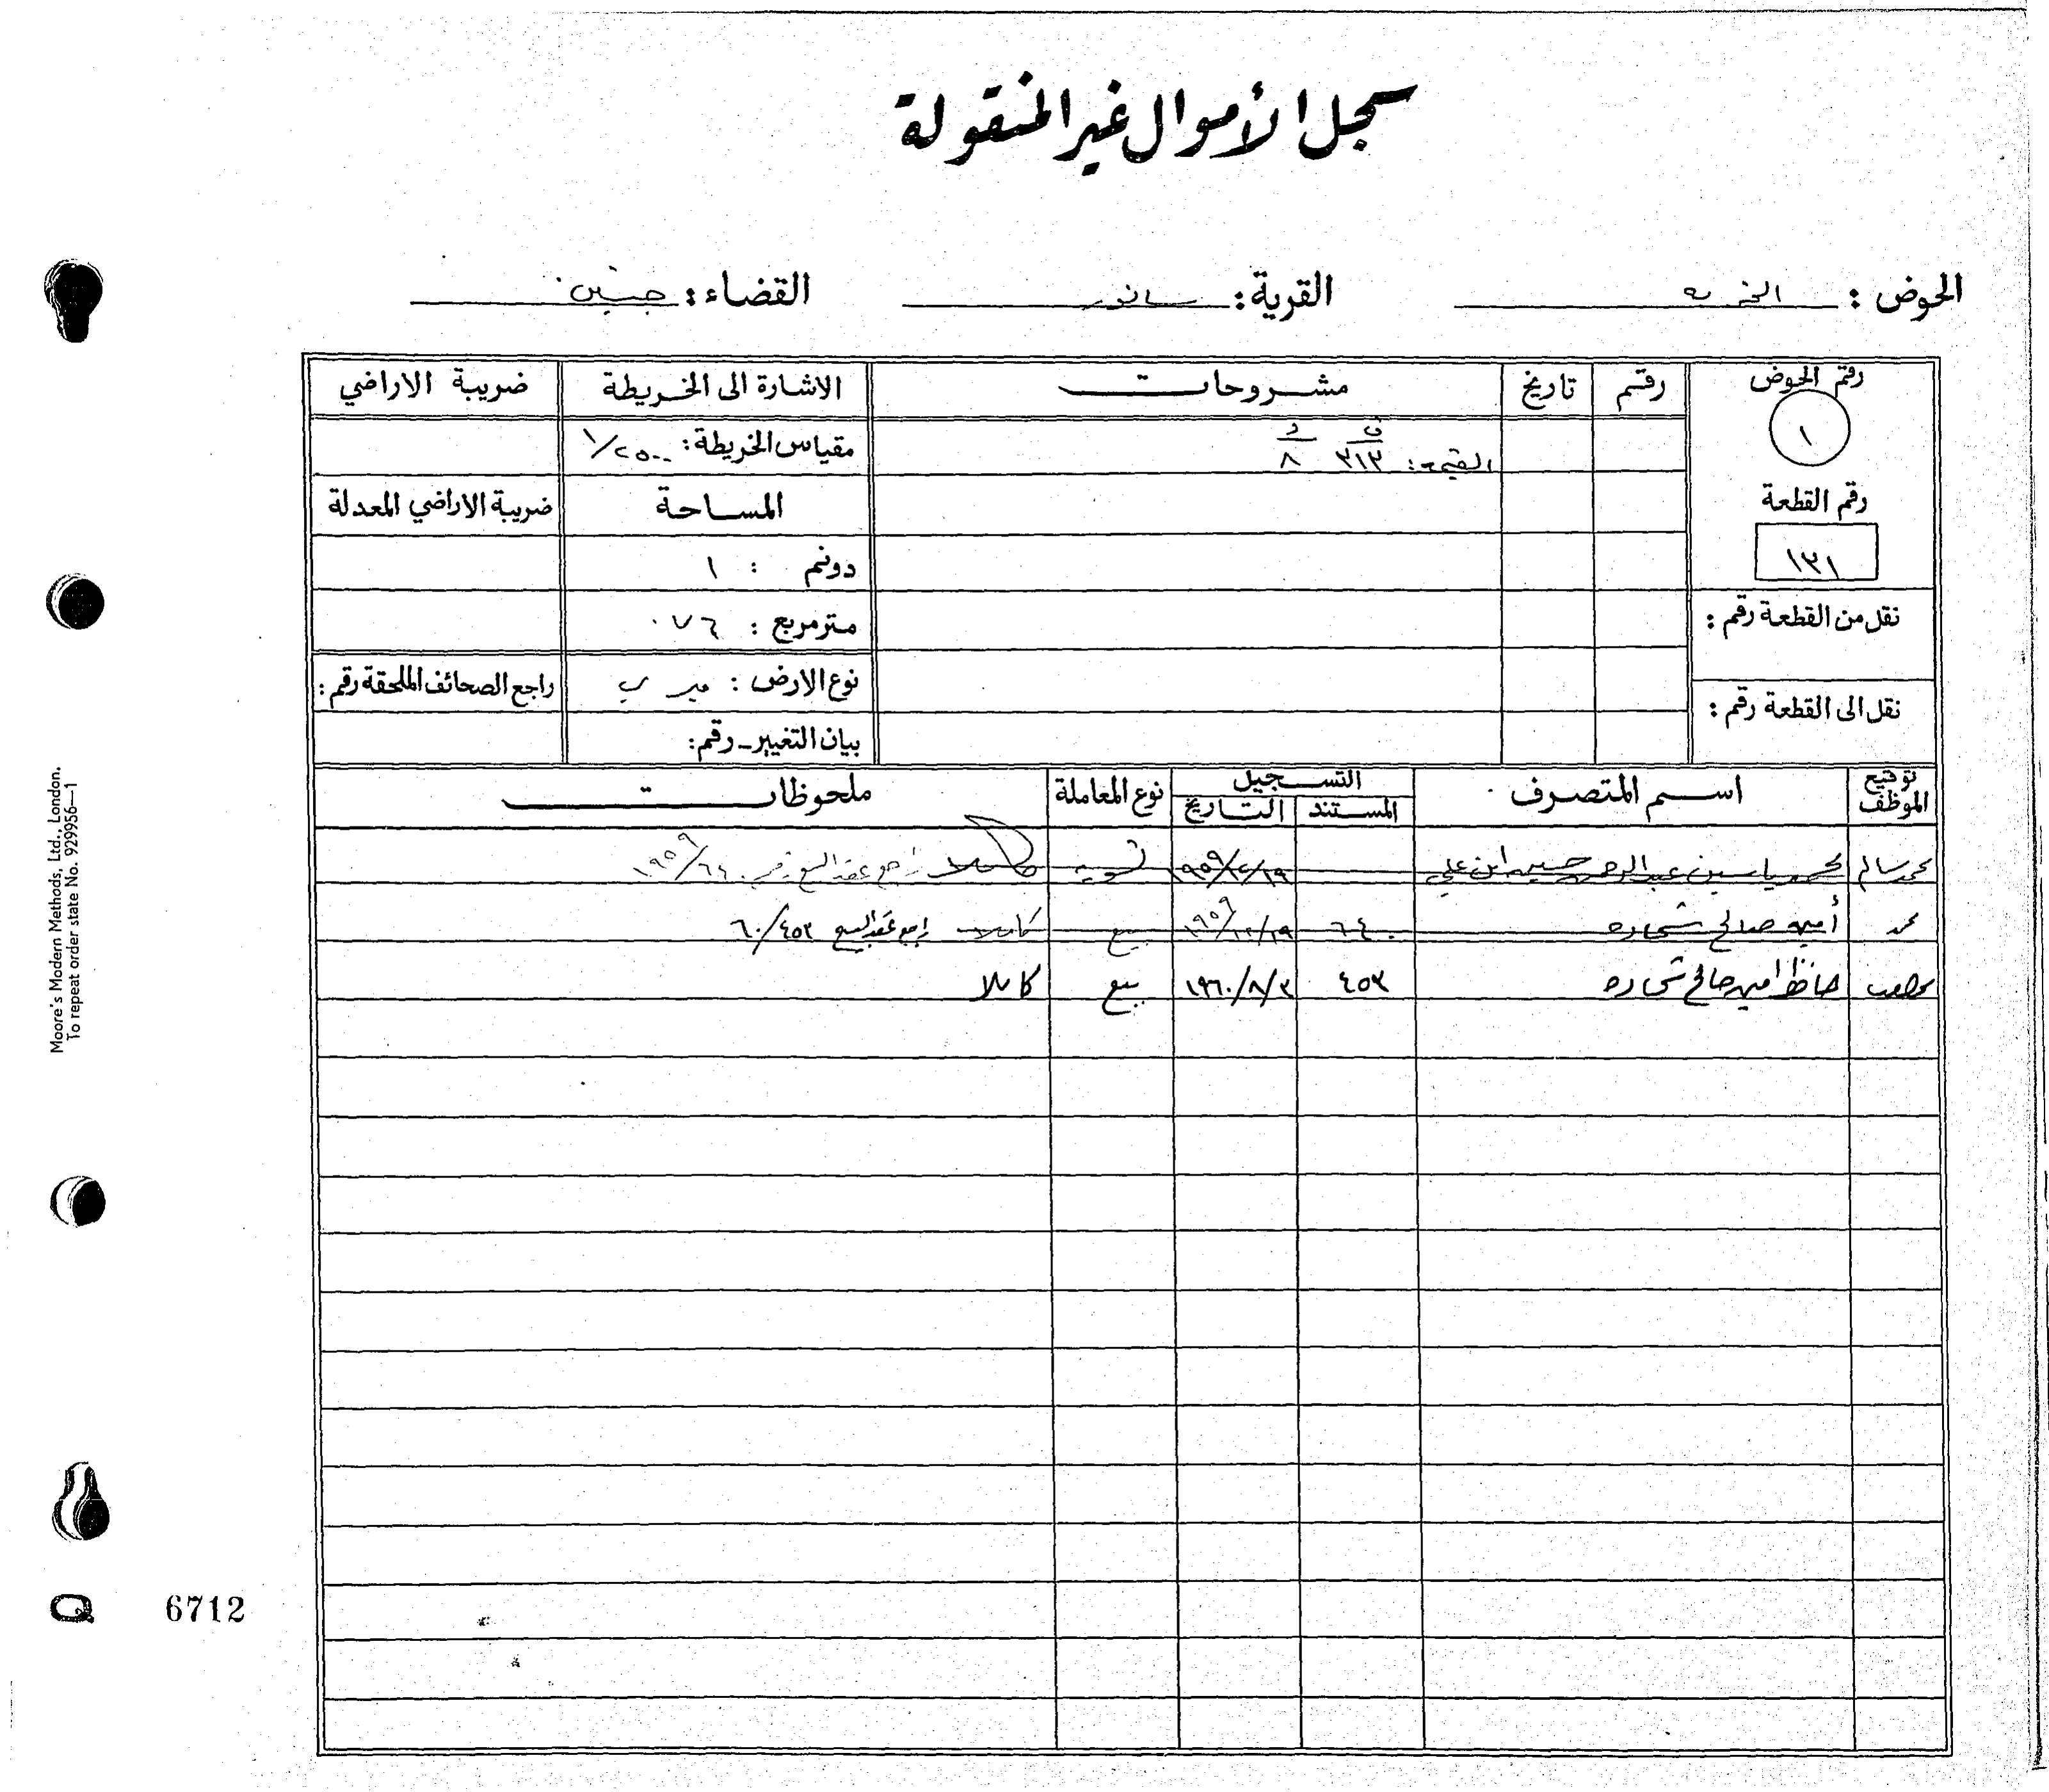 سجل الأموال غير المنقولة
الحوض : القرية : سانور القضاء : جنين
رقم الحوض رقم تاريخ مشروحات الاشارة الى الخريطة ضريبة الاراضي
١
ف د
القيمة : ٣١٣ ٨ مقياس الخريطة : ١/٢٥٠٠
رقم القطعة المساحة ضريبة الاراضي المعدلة
١٣١ دونم : ١
نقل من القطعة رقم : متر مربع : ٠٧٦
نوع الارض : ميري راجع الصحائف الملحقة رقم :
نقل الى القطعة رقم : بيان التغيير - رقم :
توقيع الموظف اسم المتصرف التسجيل نوع المعاملة ملحوظات
المستند التاريخ
محمد سالم محمد ياسين عبد الرحمن حسين ابن علي تسوية كاملا راجع عقد البيع ٦٤٠/١٩٥٩
محمد أمين صالح شحاده ٦٤٠ ١٩٥٩/١٢/١٩ بيع كاملا راجع عقد البيع ٦٠/٤٥٣
حافظ امين صالح شحاده ٤٥٣ ١٩٦٠/٨/٣ بيع كاملا
Moore's Modern Methods, Ltd., London.
To repeat order state No. 929956—1
Q 6712